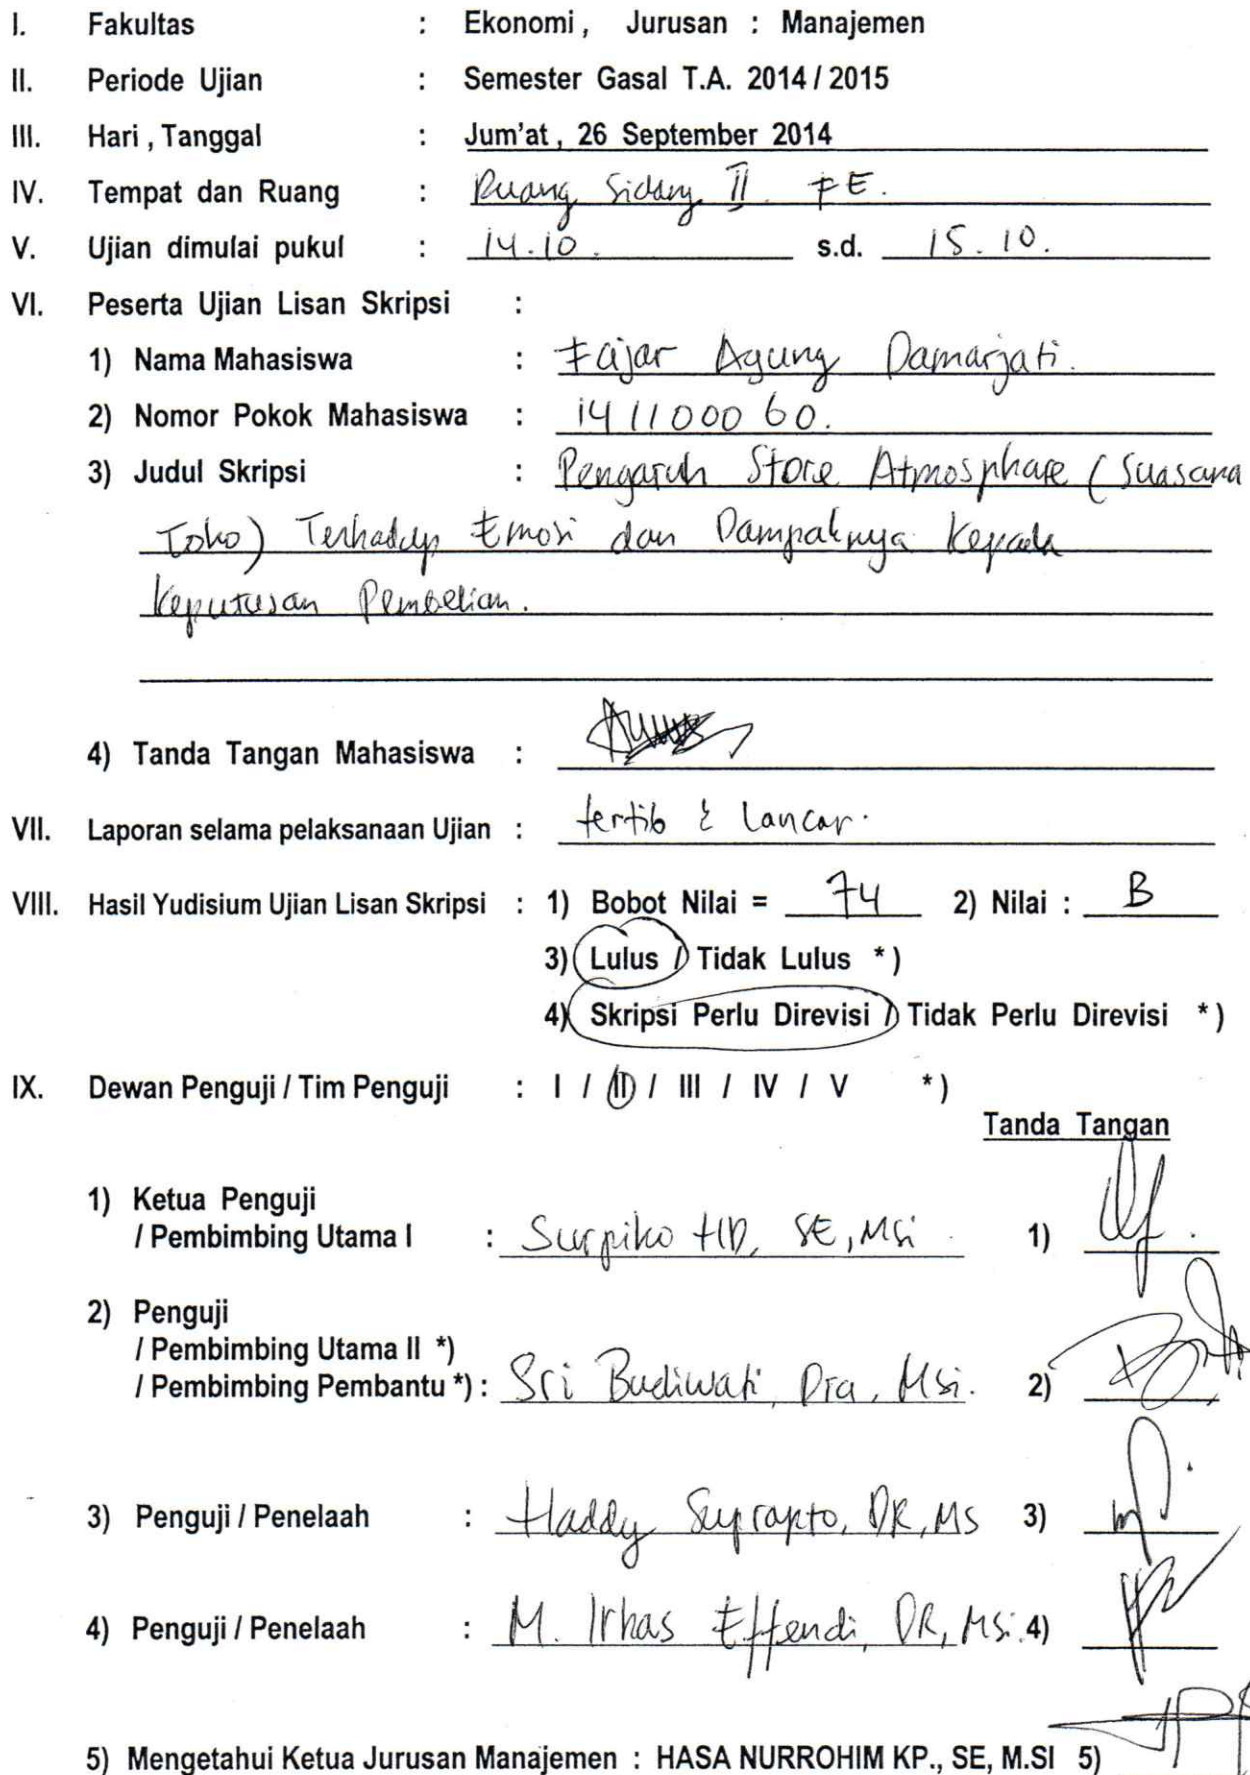 I. Fakultas : Ekonomi , Jurusan : Manajemen
II. Periode Ujian : Semester Gasal T.A. 2014 / 2015
III. Hari , Tanggal : Jum'at , 26 September 2014
IV. Tempat dan Ruang : Ruang Sidang II FE.
V. Ujian dimulai pukul : 14.10. s.d. 15.10.
VI. Peserta Ujian Lisan Skripsi :
1) Nama Mahasiswa : Fajar Agung Damarjati.
2) Nomor Pokok Mahasiswa : 141100060.
3) Judul Skripsi : Pengaruh Store Atmosphare (Suasana
Toko) Terhadap Emosi dan Dampaknya Kepada
Keputusan Pembelian.
4) Tanda Tangan Mahasiswa :
VII. Laporan selama pelaksanaan Ujian : tertib & Lancar.
VIII. Hasil Yudisium Ujian Lisan Skripsi : 1) Bobot Nilai = 74 2) Nilai : B
3) Lulus / Tidak Lulus *)
4) Skripsi Perlu Direvisi / Tidak Perlu Direvisi *)
IX. Dewan Penguji / Tim Penguji : I / II / III / IV / V *)
Tanda Tangan
1) Ketua Penguji
/ Pembimbing Utama I : HD, SE, MSi 1)
2) Penguji
/ Pembimbing Utama II *)
/ Pembimbing Pembantu *) : Sri Budiwati, Dra, Msi. 2)
3) Penguji / Penelaah : Haddy Suprapto, DR, MS 3)
4) Penguji / Penelaah : M. Irhas Effendi, DR, Msi. 4)
5) Mengetahui Ketua Jurusan Manajemen : HASA NURROHIM KP., SE, M.SI 5)